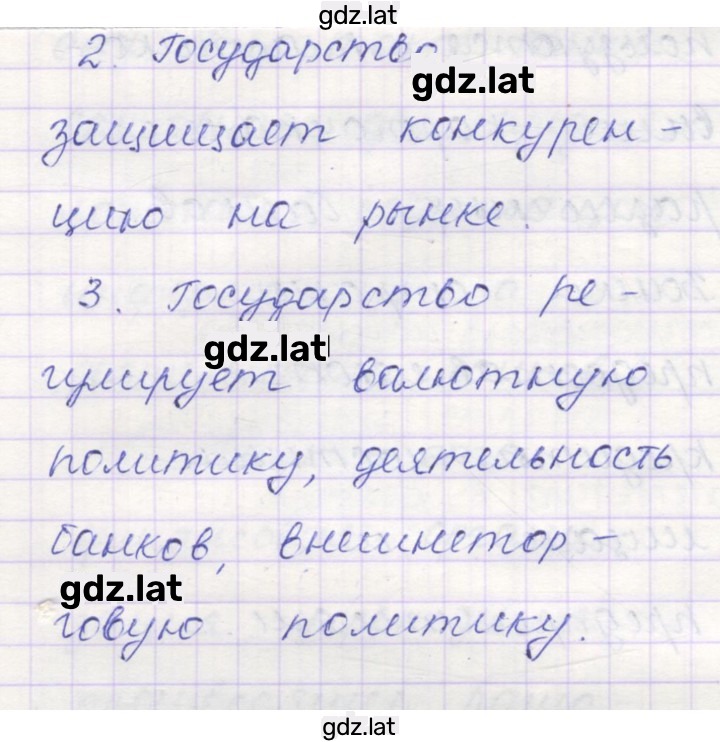 gdz.lat
2. Государство
gdz.lat
защищает конкурен-
цию на рынке.
3. Государство ре-
gdz.lat
гулирует валютную
политику, деятельность
банков, внешнетор-
gdz.lat
говую политику.
gdz.lat